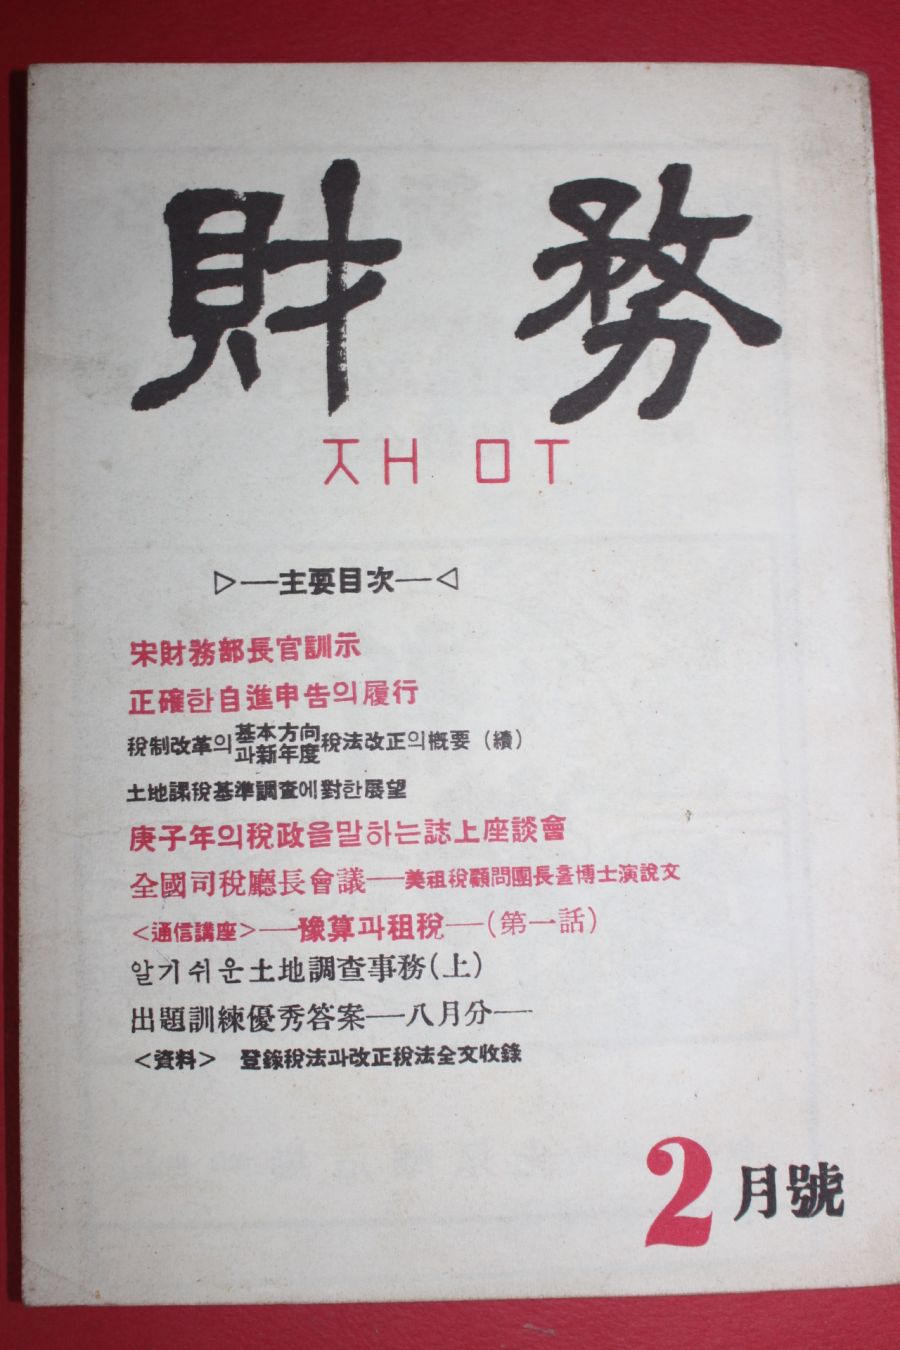 財務
ㅈㅐㅁㅜ
▷—主要目次—◁
宋財務部長官訓示
正確한自進申告의履行
稅制改革의基本方向과新年度稅法改正의槪要 (續)
土地課稅基準調査에對한展望
庚子年의稅政을말하는誌上座談會
全國司稅廳長會議——美租稅顧問團長홀博士演說文
<通信講座>——豫算과租稅——(第一話)
알기쉬운土地調査事務(上)
出題訓練優秀答案——八月分——
<資料> 登錄稅法과改正稅法全文收錄
2月號